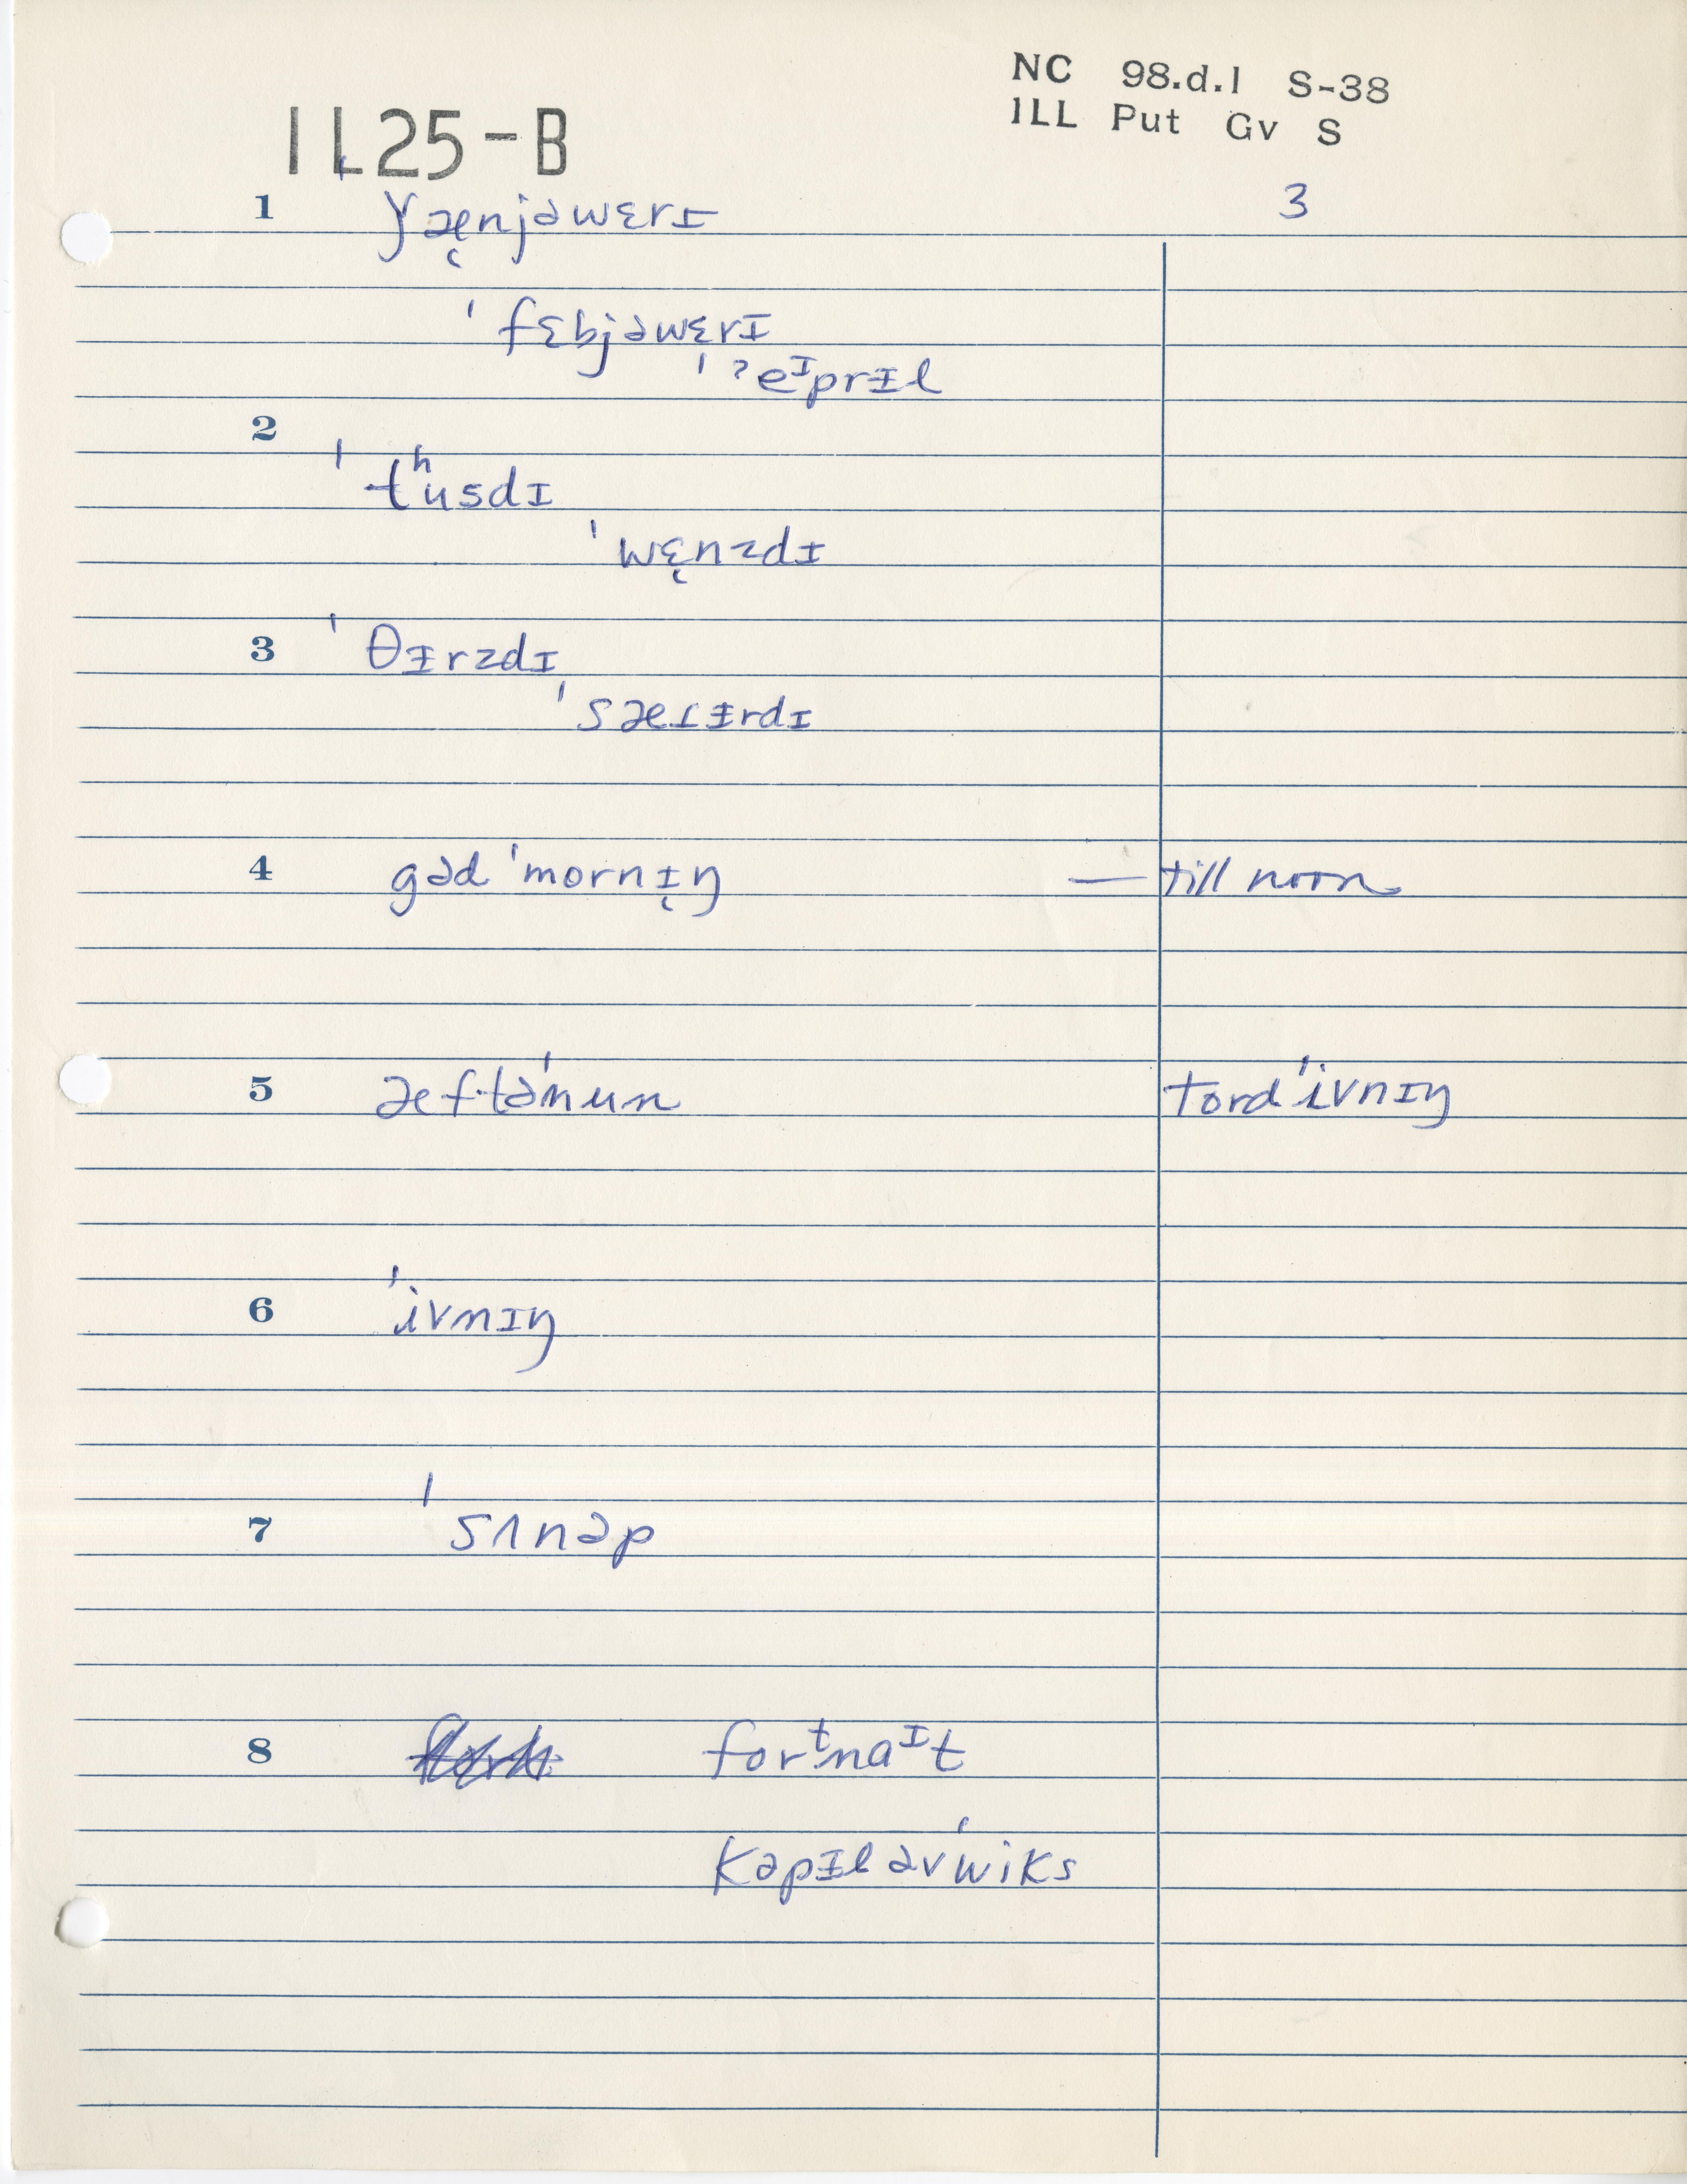 NC 98.d.1 S-38
ILL Put Gv S
IL25-B
3
1 'ǰæ̨njəwɛrɪ
'fɛbjəwɛrɪ
'ʔeᶦprɨl
2 'tʰusdɪ
'wɛ̨nzdɪ
3 'θɨrzdɪ
'sæɾɨrdɪ
4 gəd 'mornɨ̨ŋ — till noon
5 æftə'nun tord 'ivnɪŋ
6 'ivnɪŋ
7 'sʌnəp
8 forᵗnaᶦt
kəpɨl əv 'wiks